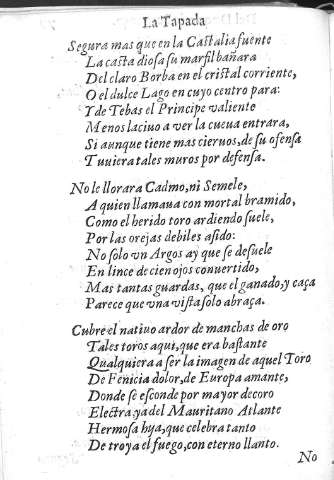 La Tapada
Segura mas que en la Castalia fuente
La casta diosa su marfil bañara
Del claro Borba en el cristal corriente,
O el dulce Lago en cuyo centro para:
Y de Tebas el Principe valiente
Menos laciuo a ver la cueua entrara,
Si aunque tiene mas cieruos, de su ofensa
Tuuiera tales muros por defensa.
No le llorara Cadmo, ni Semele,
A quien llamaua con mortal bramido,
Como el herido toro ardiendo suele,
Por las orejas debiles asido:
No solo vn Argos ay que se desuele
En lince de cien ojos conuertido,
Mas tantas guardas, que el ganado, y caça
Parece que vna vista solo abraça.
Cubre el natiuo ardor de manchas de oro
Tales toros aqui, que era bastante
Qualquiera a ser la imagen de aquel Toro
De Fenicia dolor, de Europa amante,
Donde se esconde por mayor decoro
Electra ya del Mauritano Atlante
Hermosa hija, que celebra tanto
De troya el fuego, con eterno llanto.
No